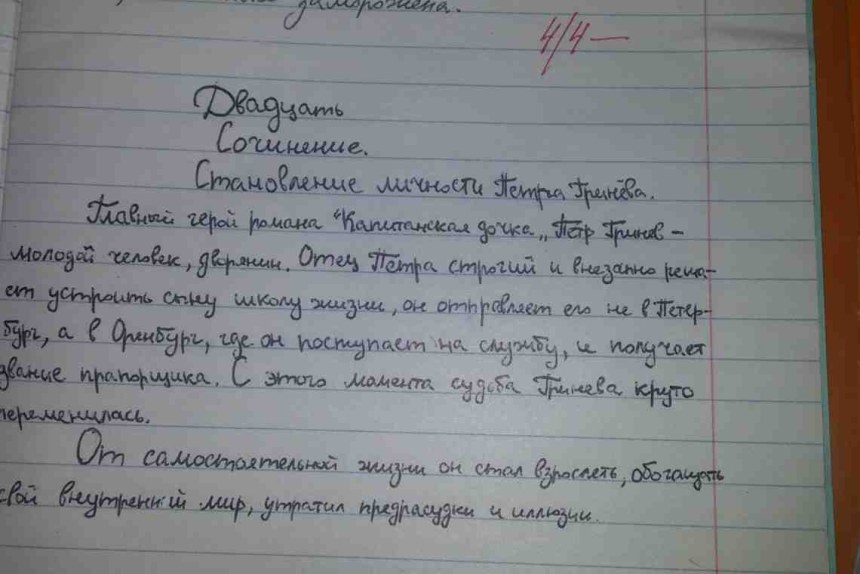 заморожена.
4/4—
Двадцать
Сочинение.
Становление личности Петра Гринёва.
Главный герой романа "Капитанская дочка„ Пётр Гринёв –
молодой человек, дворянин. Отец Петра строгий и внезапно реша-
ет устроить сыну школу жизни, он отправляет его не в Петер-
бург, а в Оренбург, где он поступает на службу, и получает
звание прапорщика. С этого момента судьба Гринева круто
переменилась.
От самостоятельной жизни он стал взрослеть, обогащать
свой внутренний мир, утратил предрасудки и иллюзии.